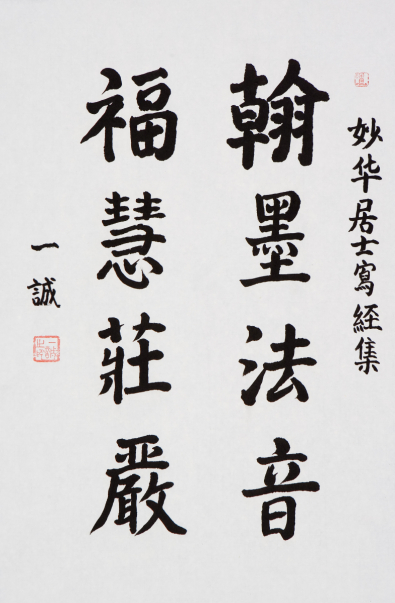 妙华居士寫経集
翰墨法音
福慧莊嚴
一誠